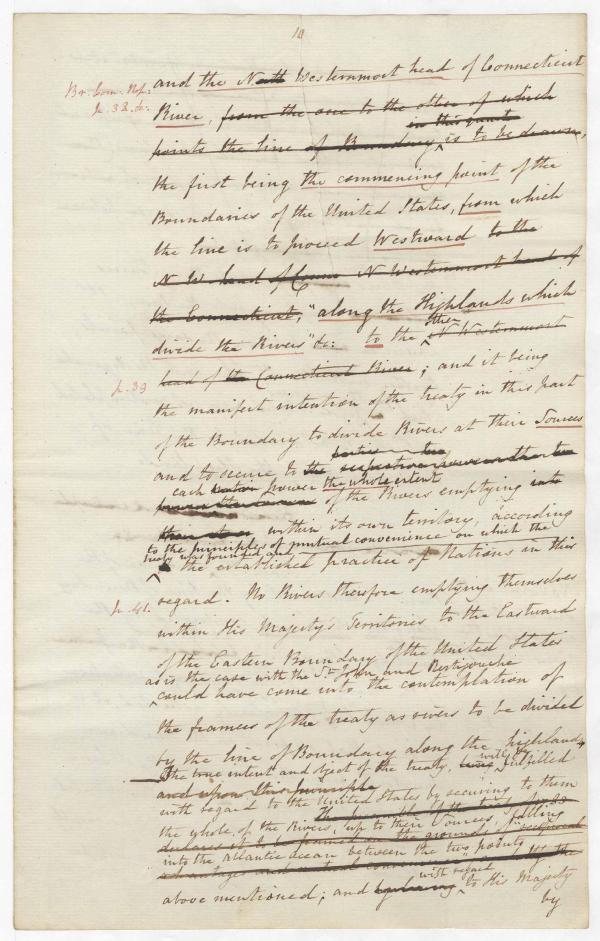 10
Br. Com. Rep:
p. 32. &c.
and the North Westernmost head of Connecticut
River, from the one to the other of which
in this quarter
points the line of Boundary is to be drawn,
the first being the commencing point of the
Boundaries of the United States, from which
the line is to proceed Westward to the
N W head of Conn N Westernmost head of
the Connecticut, "along the Highlands which
divide the Rivers" &c: to the other N Westernmost
p. 39
head of the Connecticut River; and it being
the manifest intention of the treaty in this part
of the Boundary to divide Rivers at their Sources
and to secure to the
each power the whole extent
of the Rivers emptying into
within its own territory, according
to the principles of mutual convenience on which the
treaty was founded and
the established practice of Nations in this
p. 41.
regard. No Rivers therefore emptying themselves
within His Majesty's Territories to the Eastward
of the Eastern Boundary of the United States
as is the case with the St. John and Restigouche
could have come into the contemplation of
the framers of the treaty as rivers to be divided
by the line of Boundary along the highlands
The true intent and object of the treaty, will be fulfilled
and upon this principle
with regard to the United States by securing to them
the whole of the Rivers, up to their Sources, falling
into the Atlantic ocean between the two points
above mentioned; and with regard to His Majesty
by